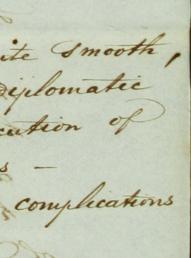 ite smooth,
diplomatic
cution of
s —
complications